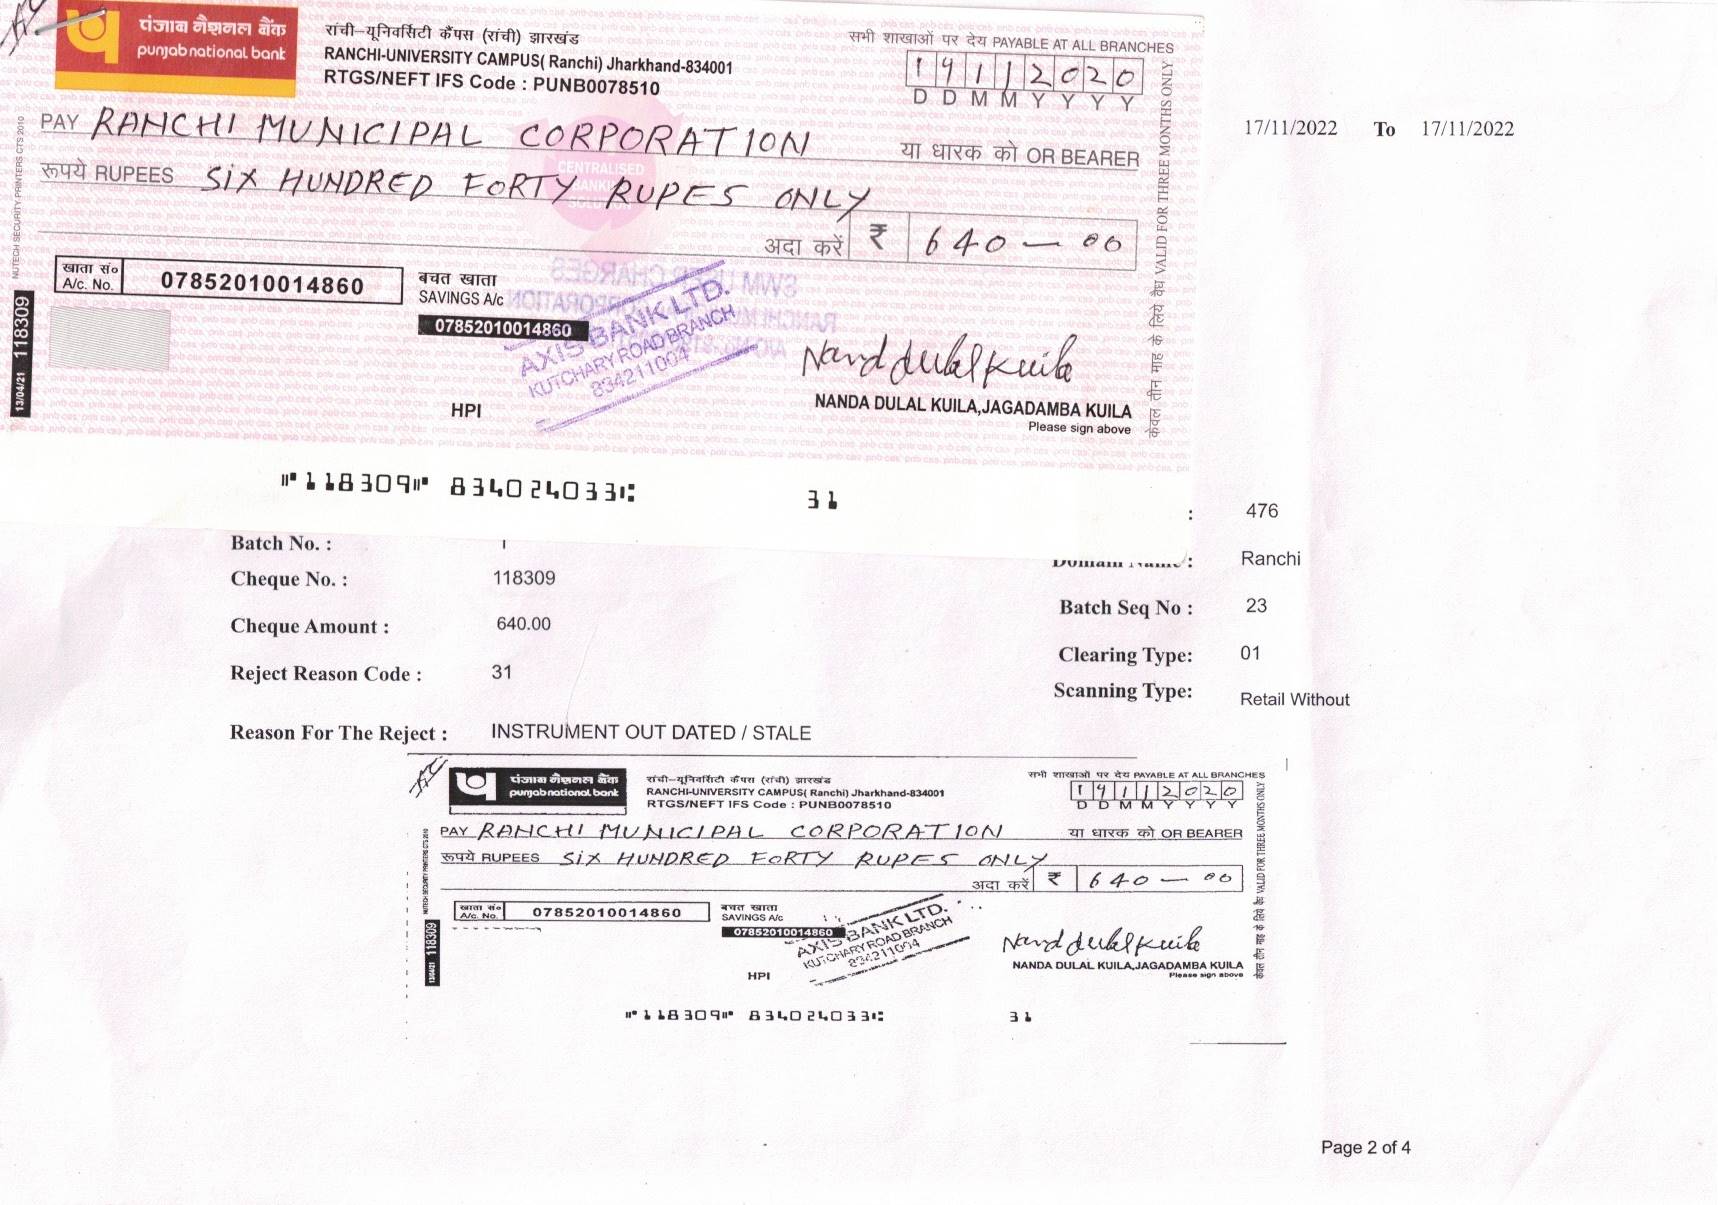 पंजाब नैशनल बैंक
punjab national bank
रांची-यूनिवर्सिटी कैंपस (रांची) झारखंड
RANCHI-UNIVERSITY CAMPUS( Ranchi) Jharkhand-834001
RTGS/NEFT IFS Code : PUNB0078510
सभी शाखाओं पर देय PAYABLE AT ALL BRANCHES
19112020
D D M M Y Y Y Y
PAY RANCHI MUNICIPAL CORPORATION या धारक को OR BEARER
रूपये RUPEES SIX HUNDRED FORTY RUPES ONLY
अदा करें ₹ 640 — 00
CENTRALISED
खाता सं० A/c. No. 07852010014860
बचत खाता
SAVINGS A/c
07852010014860
SWM USER CHARGES
AXIS BANK LTD.
KUTCHARY ROAD BRANCH
834211004
Nand dulal Kuila
NANDA DULAL KUILA,JAGADAMBA KUILA
Please sign above
HPI
NUTECH SECURITY PRINTERS CTS 2010
13/04/21 118309
केवल तीन माह के लिये वैध VALID FOR THREE MONTHS ONLY
⑈118309⑈ 834024033⑆ 31
17/11/2022 To 17/11/2022
: 476
Batch No. : 1
Domain Name : Ranchi
Cheque No. : 118309
Batch Seq No : 23
Cheque Amount : 640.00
Clearing Type: 01
Reject Reason Code : 31
Scanning Type: Retail Without
Reason For The Reject : INSTRUMENT OUT DATED / STALE
पंजाब नैशनल बैंक
punjab national bank
रांची-यूनिवर्सिटी कैंपस (रांची) झारखंड
RANCHI-UNIVERSITY CAMPUS( Ranchi) Jharkhand-834001
RTGS/NEFT IFS Code : PUNB0078510
सभी शाखाओं पर देय PAYABLE AT ALL BRANCHES
19112020
D D M M Y Y Y Y
PAY RANCHI MUNICIPAL CORPORATION या धारक को OR BEARER
रूपये RUPEES SIX HUNDRED FORTY RUPES ONLY
अदा करें ₹ 640 — 00
खाता सं० A/c. No. 07852010014860
बचत खाता
SAVINGS A/c
07852010014860
AXIS BANK LTD.
KUTCHARY ROAD BRANCH
834211004
Nand dulal Kuila
NANDA DULAL KUILA,JAGADAMBA KUILA
Please sign above
HPI
NUTECH SECURITY PRINTERS CTS 2010
13/04/21 118309
केवल तीन माह के लिये वैध VALID FOR THREE MONTHS ONLY
⑈118309⑈ 834024033⑆ 31
Page 2 of 4